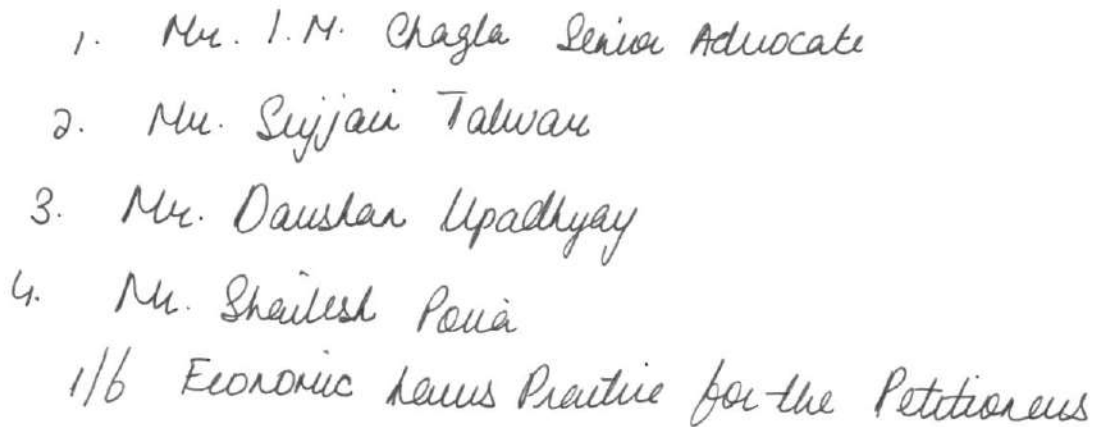 1. Mr. I.M. Chagla Senior Advocate
2. Mr. Sujjain Talwar
3. Mr. Darshan Upadhyay
4. Mr. Shailesh Poria
i/b Economic Laws Practice for the Petitioners